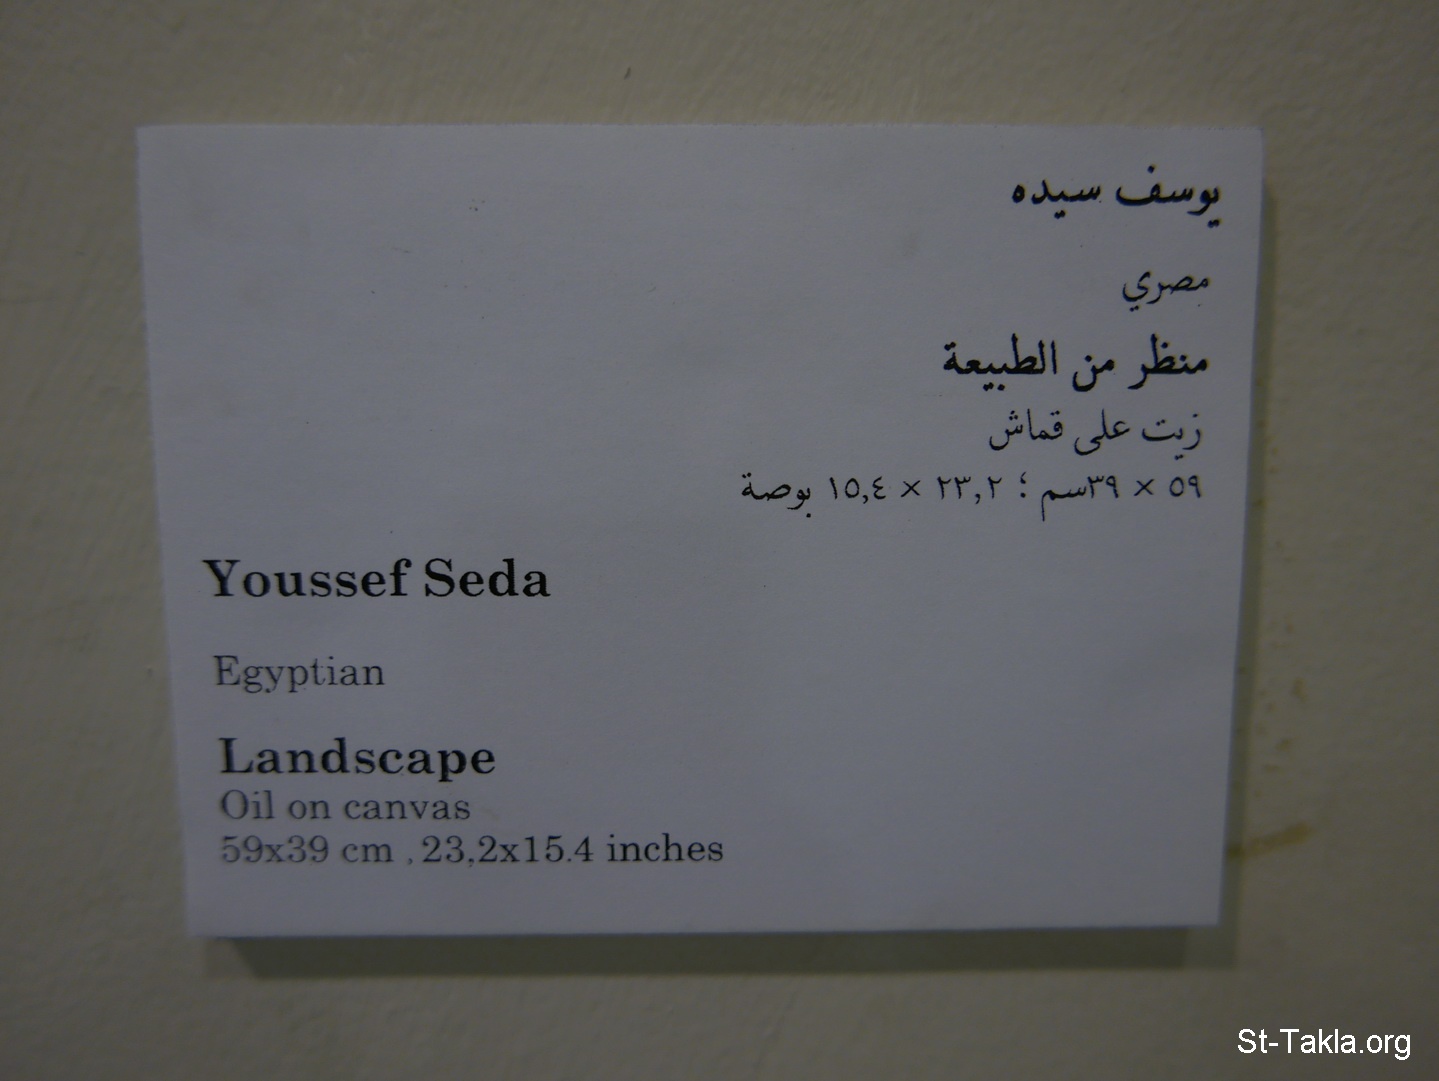 يوسف سيده
مصري
منظر من الطبيعة
زيت على قماش
٥٩ × ٣٩سم ؛ ٢٣,٢ × ١٥,٤ بوصة
Youssef Seda
Egyptian
Landscape
Oil on canvas
59x39 cm , 23,2x15.4 inches
St-Takla.org